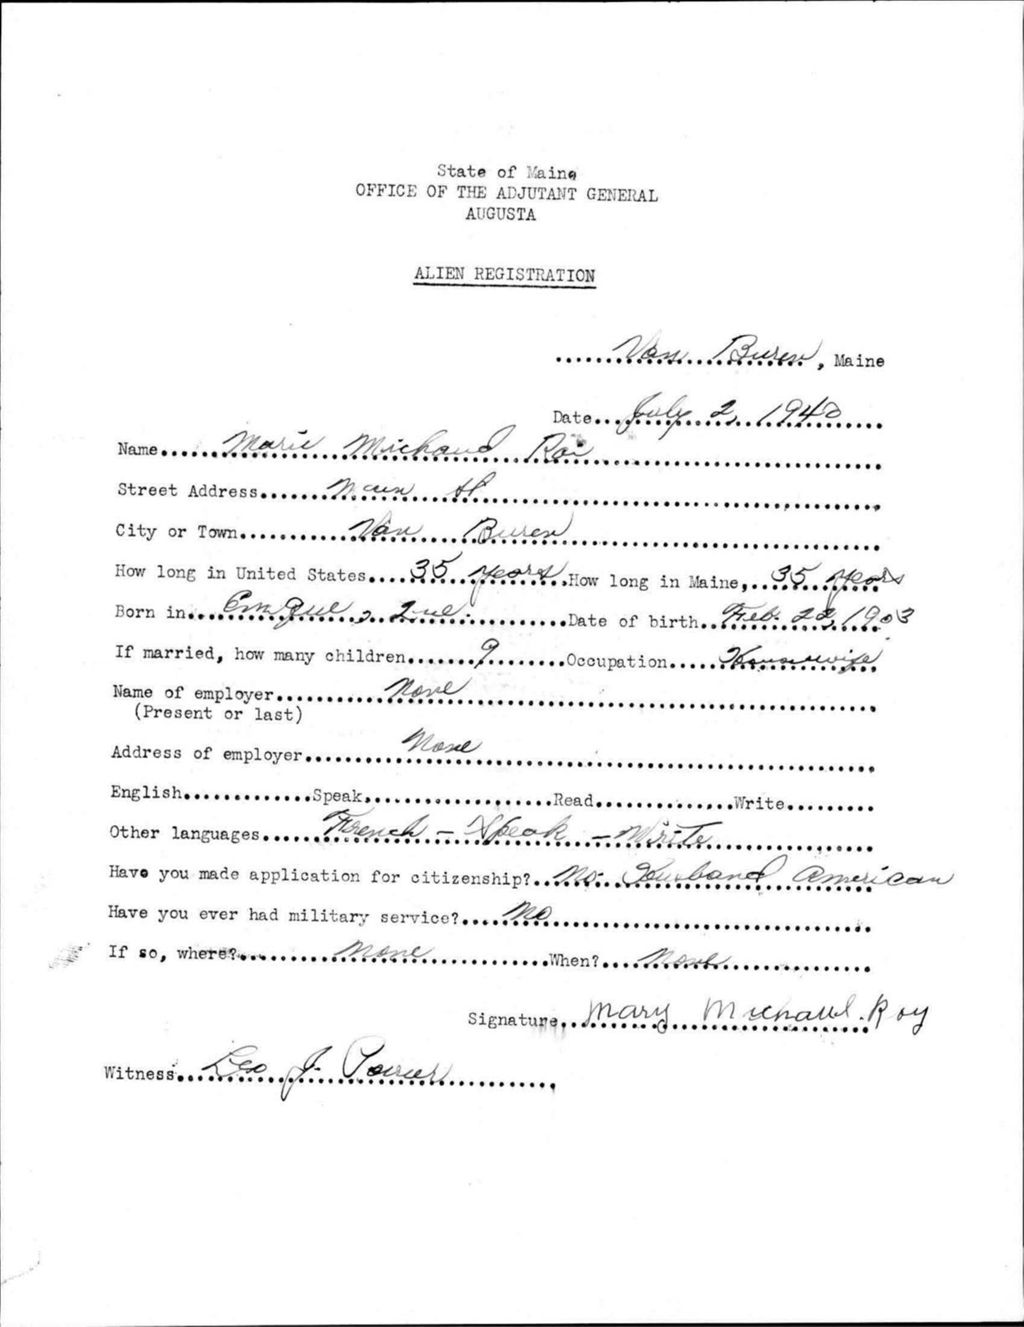 State of Maine
OFFICE OF THE ADJUTANT GENERAL
AUGUSTA
ALIEN REGISTRATION
Van Buren, Maine
Date July 2, 1940
Name Marie Michaud Roi
Street Address Main St
City or Town Van Buren
How long in United States 35 years How long in Maine, 35 years
Born in Que. Date of birth Feb. 22, 1903
If married, how many children 9 Occupation Housewife
Name of employer None
(Present or last)
Address of employer None
English Speak Read Write
Other languages French - Speak - Write
Have you made application for citizenship? No- Husband American
Have you ever had military service? No
If so, where? None When? None
Signature Mary Michaud. Roy
Witness Leo J. Poirier